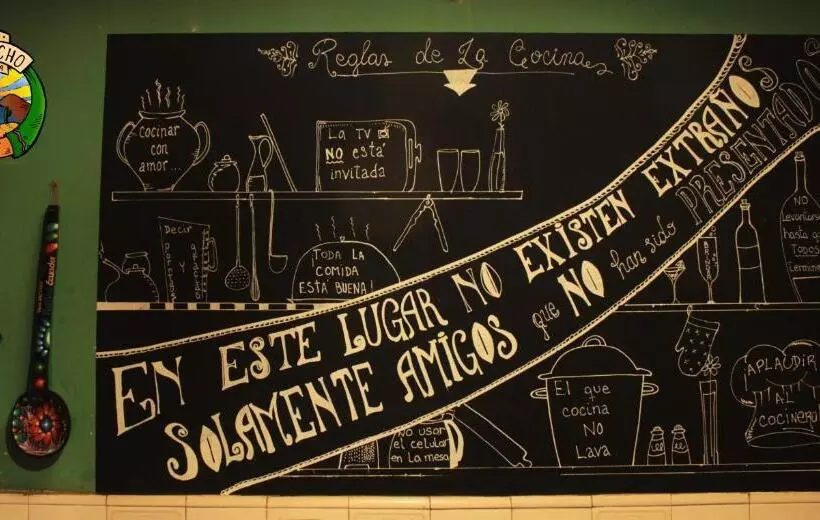 CHO
Reglas de La Cocina
cocinar
con
amor...
La TV
NO está
invitada
Decir
TODA LA
COMIDA
ESTÁ BUENA!
EN ESTE LUGAR NO EXISTEN EXTRAÑOS
SOLAMENTE AMIGOS que NO han sido PRESENTADOS
NO
Levantarse
hasta q
TODOS
termine
no usar
el celular
en la mesa
El que
cocina
NO
Lava
APLAUDIR
AL
COCINERO
Ecuador